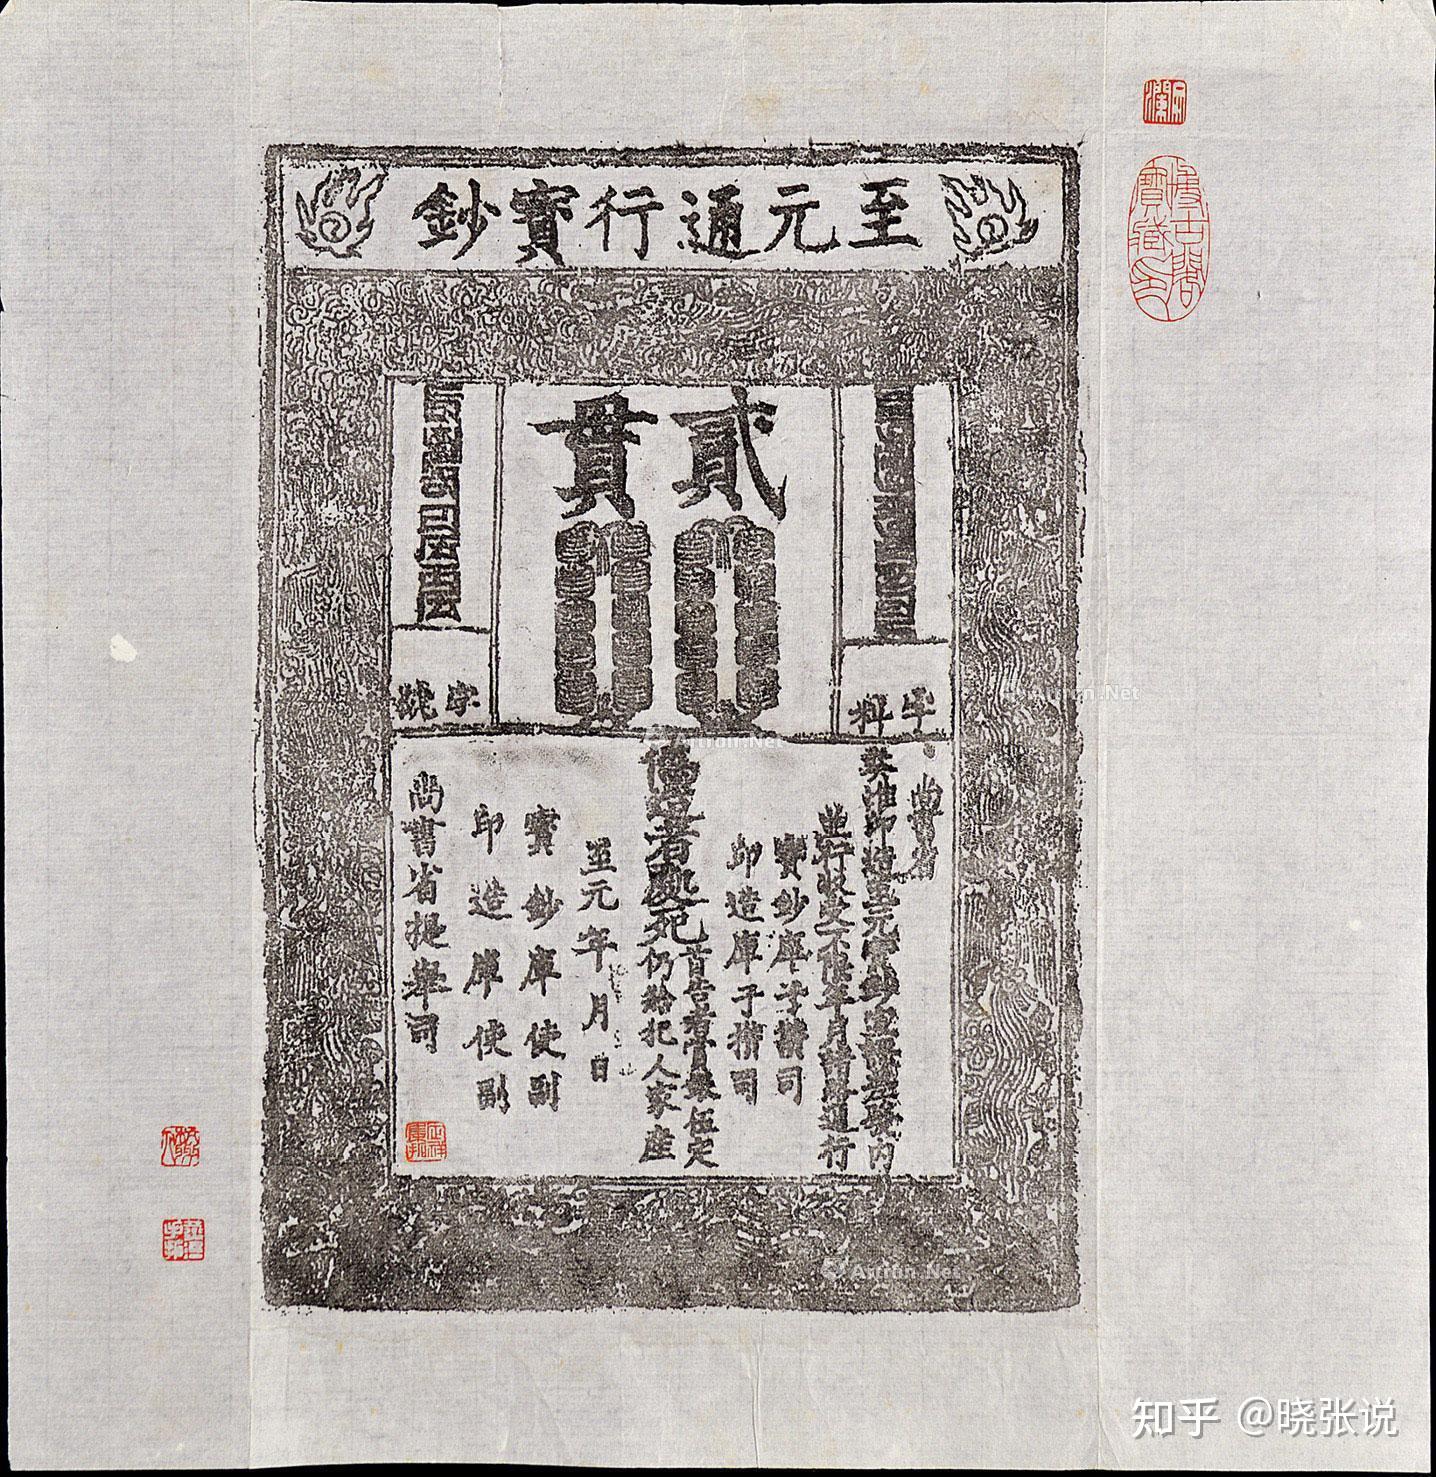 至元通行寳鈔
貳貫
字料
字號
尚書省
奏准印造至元寳鈔宣課差役內
並行收受不限年月諸路通行
寳鈔庫子攢司
印造庫子攢司
僞造者處死
首告者賞銀伍定
仍給犯人家産
至元年月日
寳鈔庫使副
印造庫使副
尚書省提舉司
Artron.Net
Artron.Net
Artron.Net
知乎 @晓张说